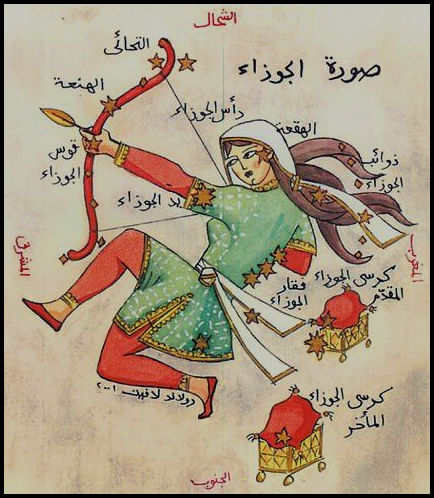 الشمال
صورة الجوزاء
التحائى
الهنعة
رأس الجوزاء
الهقعة
ذوائب
الجوزاء
قوس
الجوزاء
يد الجوزاء
المغرب
المشرق
كرسى الجوزاء
المقدّم
فقار
الجوزاء
كرسى الجوزاء
المأخر
الجنوب